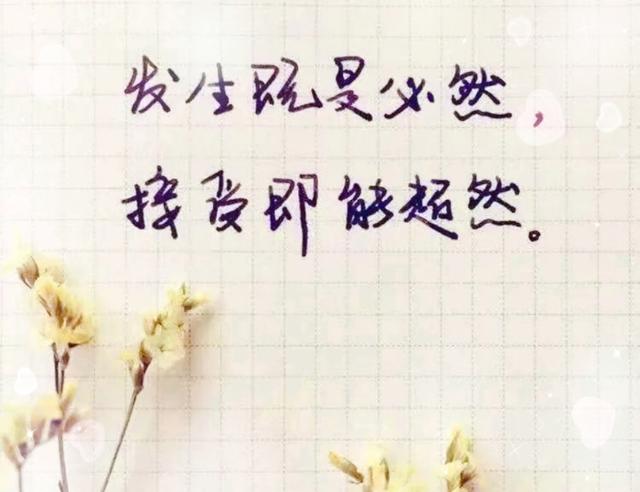 发生既是必然,
接受即能超然。